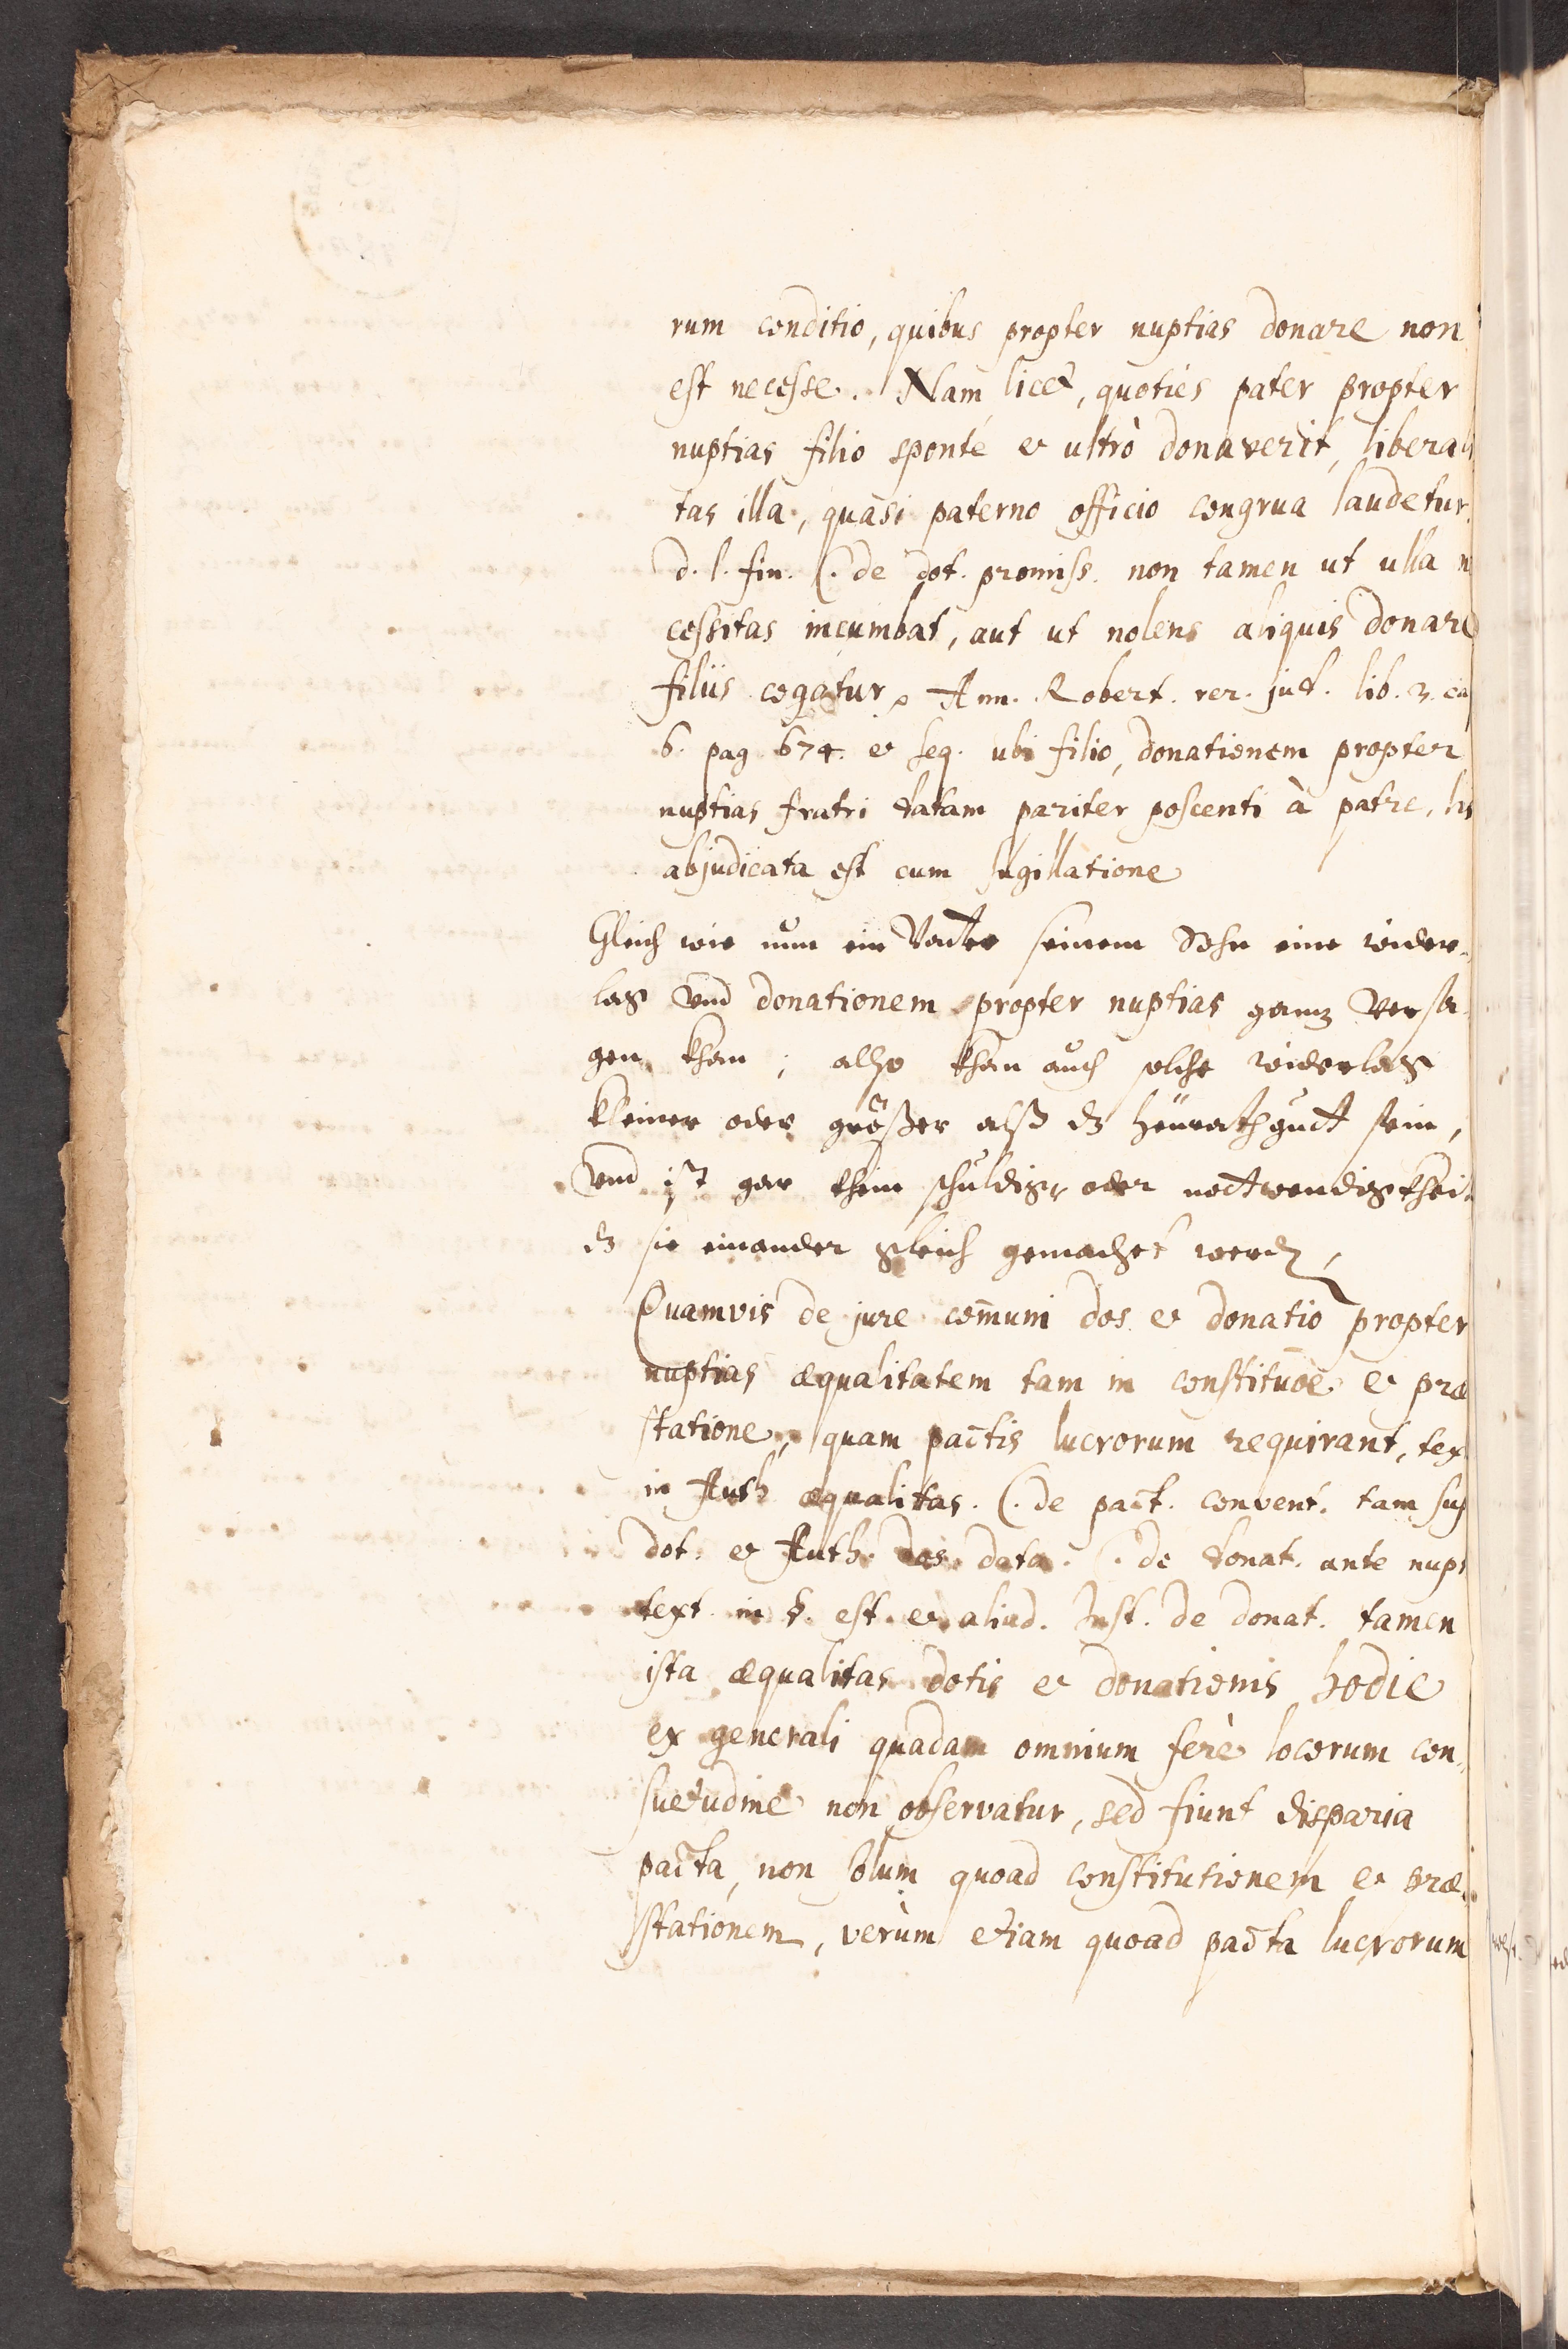 rum conditio, quibus propter nuptias donare non
est necesse. Nam licet, quoties pater propter
nuptias filio sponté et ultrò donaverit, liberali
tas illa, quasi paterno officio congrua laudetur.
d. l. fin. C. de dot. promiss. non tamen ut ulla ne
cessitas incumbat, aut ut nolens aliquis donare
filiis cogatur. Ann. Robert. rer. jud. lib. 3. cap
6. pag 674. et seq. ubi filio, donationem propter
nuptias fratri datam pariter poscenti à patre, lis
abjudicata est cum sugillatione
Gleich wie nun ein Vatter seinem Sohn eine wider-
lag vnd donationem propter nuptias ganz versa-
gen khan; allso khan auch solche widerlag
kleiner oder größer alß dz heürathgutt sein,
vnd ist gar khein schuldig- oder nottwendigkheit
dz sie einander gleich gemachet werdn,
Quamvis de jure com̄uni dos et donatio propter
nuptias æqualitatem tam in constituōe et præ
statione, quam pactis lucrorum requirant, tex
in Auth æqualitas. C. de pact. convent. tam sup
dot. et Auth. dos data. C. de donat. ante nupt
text. in §. est et aliud. Inst. de donat. tamen
ista æqualitas dotis et donationis hodie
ex generali quadam omnium ferè locorum con-
suetudine non observatur, sed fiunt disparia
pacta, non solum quoad constitutionem et præ-
stationem, verùm etiam quoad pacta lucrorum